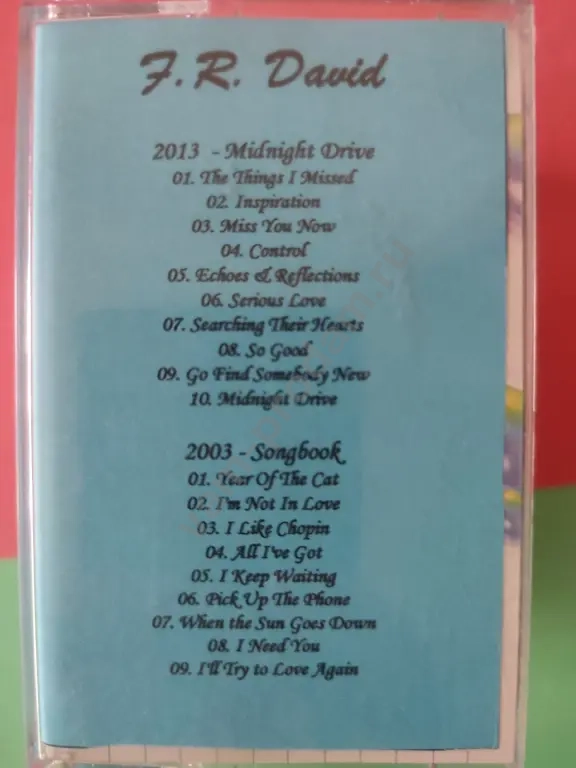 F.R. David
2013 - Midnight Drive
01. The Things I Missed
02. Inspiration
03. Miss You Now
04. Control
05. Echoes & Reflections
06. Serious Love
07. Searching Their Hearts
08. So Good
09. Go Find Somebody New
10. Midnight Drive
2003 - Songbook
01. Year Of The Cat
02. I'm Not In Love
03. I Like Chopin
04. All I've Got
05. I Keep Waiting
06. Pick Up The Phone
07. When the Sun Goes Down
08. I Need You
09. I'll Try to Love Again